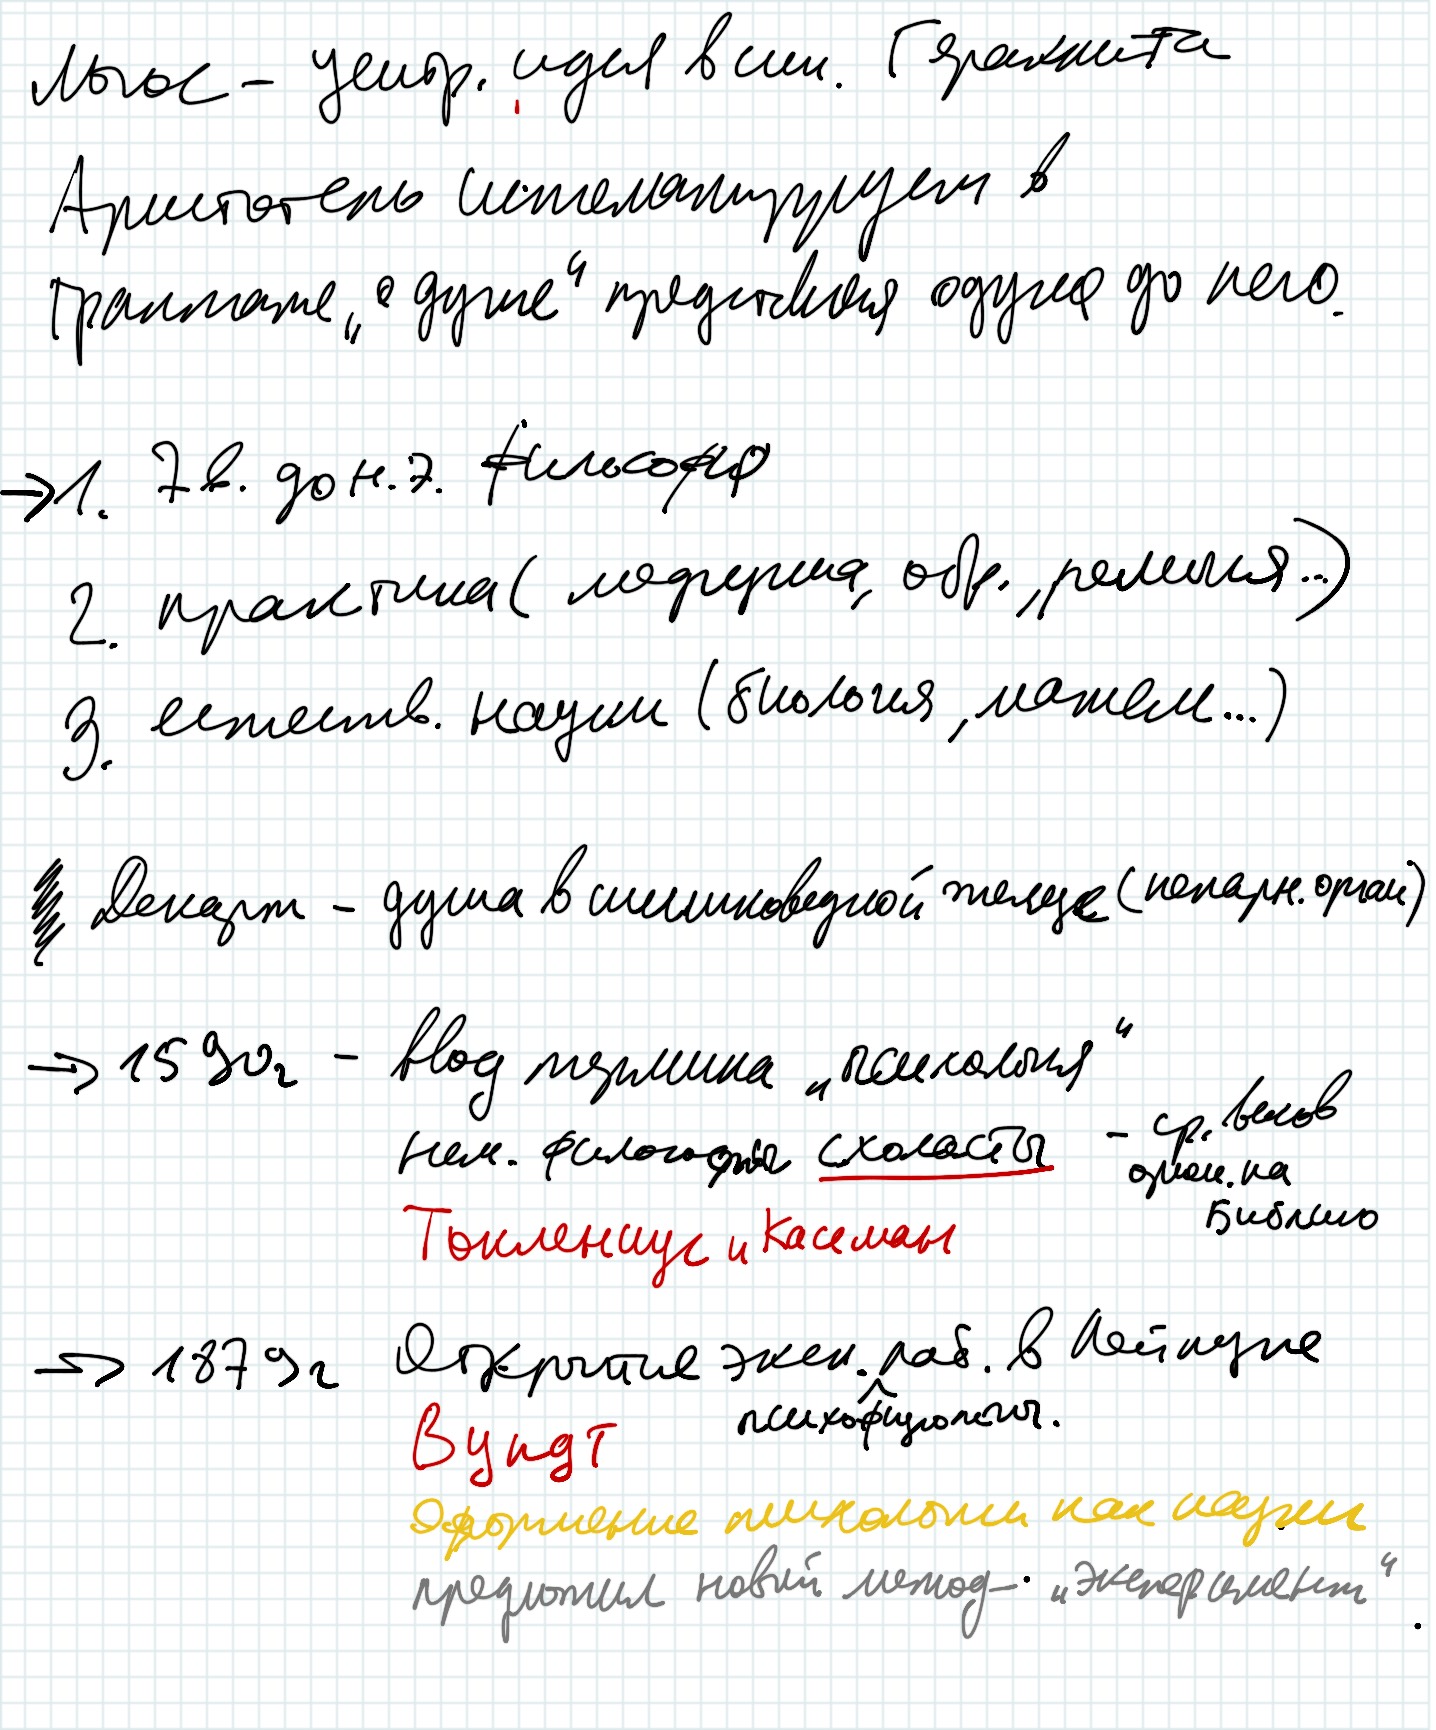 Логос – центр. идея в уч. Гераклита
Аристотель систематизирует в
Трактате „о душе“ представления о душе до него.
→ 1. 7 в. до н.э. философ
2. практика ( медицина, обр., религия...)
3. естеств. науки ( биология, матем...)
Декарт – душа в шишковидной железе ( непарн. орган)
→ 1590г – ввод термина „психология“
нем. философы схоласты – ср. веков
орган. на
Библию
Гоклениус и Кассман
→ 1879г Открытие эксп. лаб. в Лейпциге
психофизиологич.
Вундт
Оформление психологии как науки
предложил новый метод – „эксперимент“